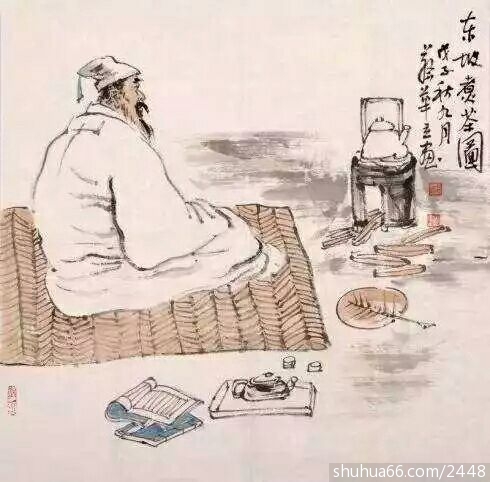 东坡煮茶圖
戊子秋九月
華 画
shuhua66.com/2448